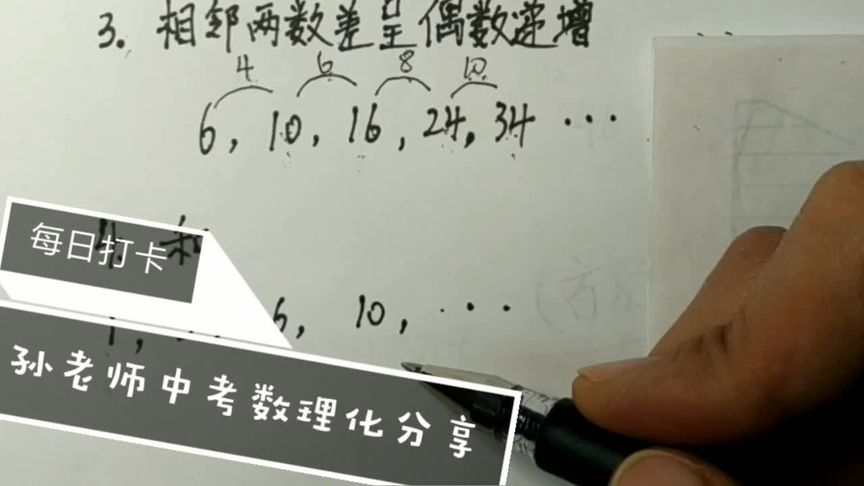 3. 相邻两数差呈偶数递增
4 6 8 10
6, 10, 16, 24, 34 ···
每日打卡
6, 10, ···
孙老师中考数理化分享